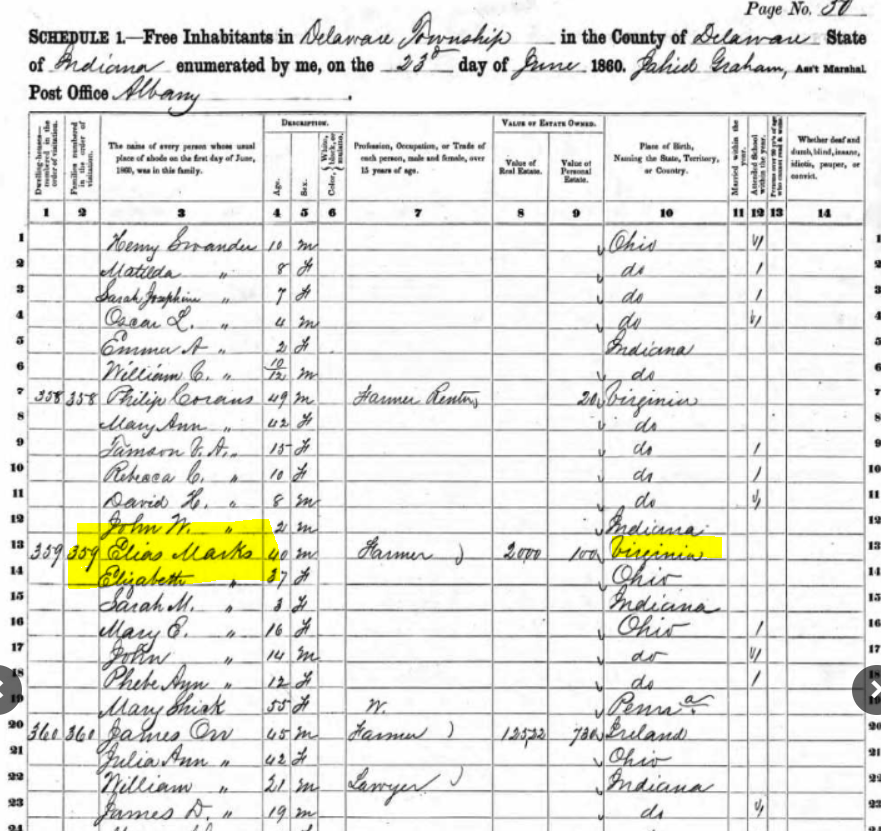 Page No. 50
SCHEDULE 1.—Free Inhabitants in Delaware Township in the County of Delaware State
of Indiana enumerated by me, on the 23d day of June 1860. Graham, Ass't Marshal
Post Office Albany.
Dwelling-houses—numbered in the order of visitation.
Families numbered in the order of visitation.
The name of every person whose usual place of abode on the first day of June, 1860, was in this family.
DESCRIPTION.
Age.
Sex.
Color, White, black, or mulatto.
Profession, Occupation, or Trade of each person, male and female, over 15 years of age.
VALUE OF ESTATE OWNED.
Value of Real Estate.
Value of Personal Estate.
Place of Birth, Naming the State, Territory, or Country.
Married within the year.
Attended School within the year.
Persons over 20 y'rs of age who cannot read & write.
Whether deaf and dumb, blind, insane, idiotic, pauper, or convict.
1 2 3 4 5 6 7 8 9 10 11 12 13 14
1 Henry Swander 10 m Ohio 1 1
2 Matilda " 8 f do 1 2
3 Sarah Josephine " 7 f do 1 3
4 Oscar L. " 4 m do 1 4
5 Emma A " 2 f Indiana 5
6 William C. " 10/12 m do 6
7 358 358 Philip Corans 49 m Farmer Renter 20 Virginia 7
8 Mary Ann " 42 f do 8
9 Tamson V. A. " 15 f do 1 9
10 Rebecca C. " 10 f do 1 10
11 David H. " 8 m do 1 11
12 John W. " 2 m Indiana 12
13 359 359 Elias Marks 40 m Farmer 2000 100 Virginia 13
14 Elizabeth " 37 f Ohio 14
15 Sarah M. " 3 f Indiana 15
16 Mary E. " 16 f Ohio 1 16
17 John " 14 m do 1 17
18 Phebe Ann " 12 f do 1 18
19 Mary Shick 55 f W. Penna 19
20 360 360 James Orr 45 m Farmer 730 Ireland 20
21 Julia Ann " 42 f Ohio 21
22 William " 21 m Lawyer Indiana 22
23 James D. " 19 m do 1 23
24